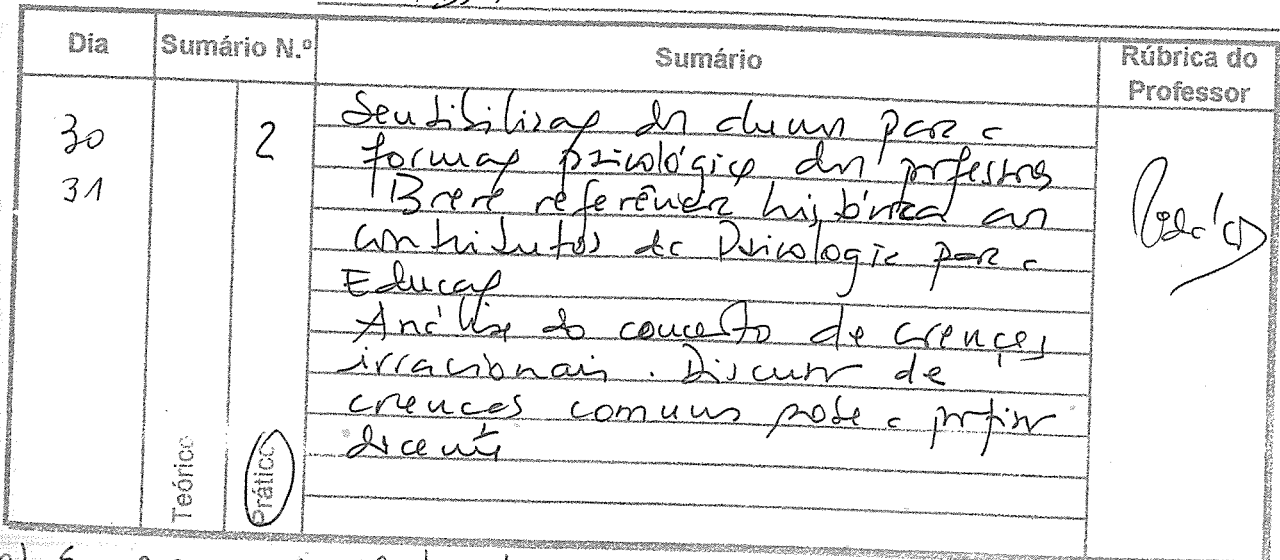 Dia Sumário N.º Sumário Rúbrica do Professor
30 2
31
Sensibilização dos alunos para a
formação psicológica dos professores
Breve referência histórica aos
contributos da Psicologia para a
Educação
Análise do conceito de crenças
irracionais. Discussão de
crenças comuns sobre a profissão
docente
Teórico
Prático